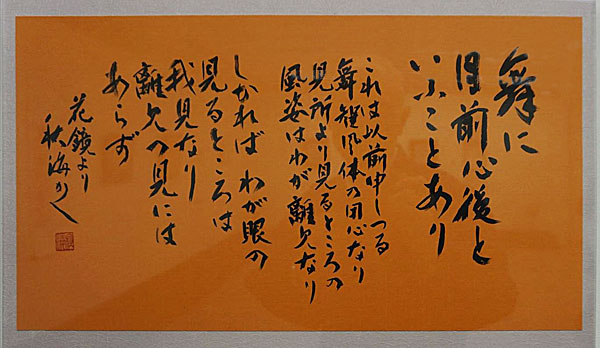 舞に
目前心後と
いふことあり
これは以前申しつる
舞智風体の用心なり
見所より見るところの
風姿はわが離見なり
しかれば わが眼の
見るところは
我見なり
離見の見には
あらず
花鏡より
秋海かく